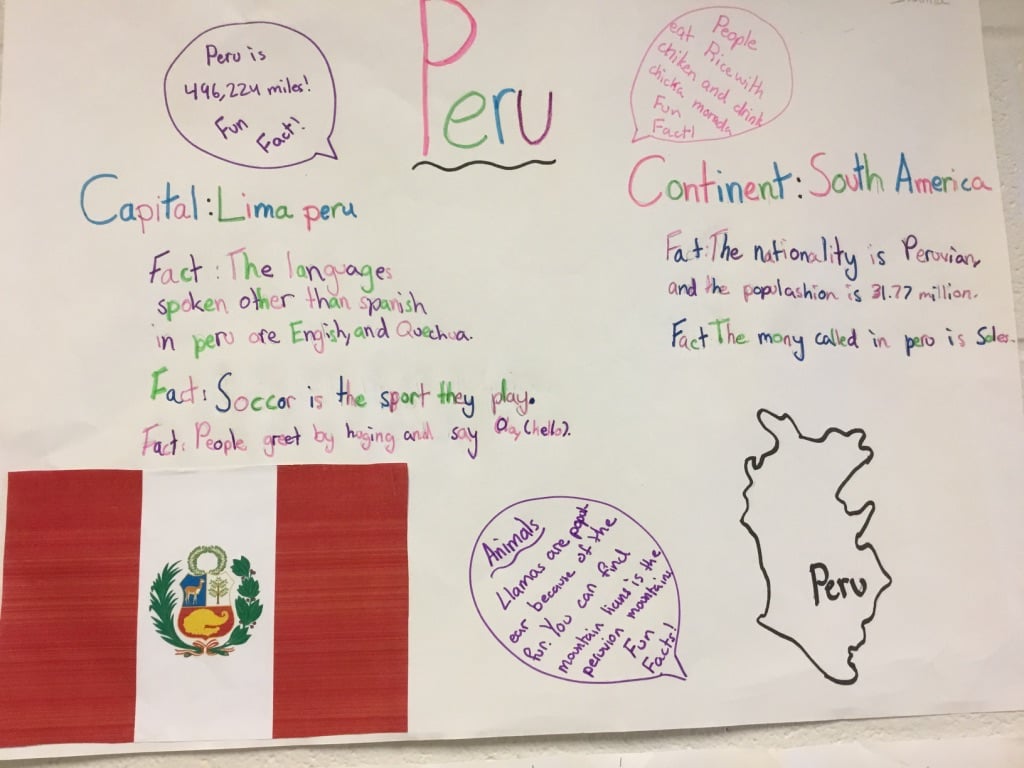 Peru
Peru is
496,224 miles!
Fun
Fact!
People
eat Rice with
chiken and drink
chicka morada
Fun
Fact!
Capital: Lima peru
Fact: The languages
spoken other than spanish
in peru are English, and Quechua.
Fact: Soccor is the sport they play.
Fact: People greet by huging and say Ola, (hello).
Continent: South America
Fact: The nationality is Peruvian,
and the populashion is 31.77 million.
Fact The mony called in peru is Soles.
Animals
Llamas are popul
ear because of the
fur. You can find
mountain lions is the
peruvion mountains
Fun
Facts!
Peru